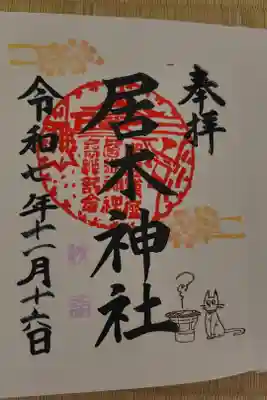 奉拝
居木神社
令和七年十一月十六日